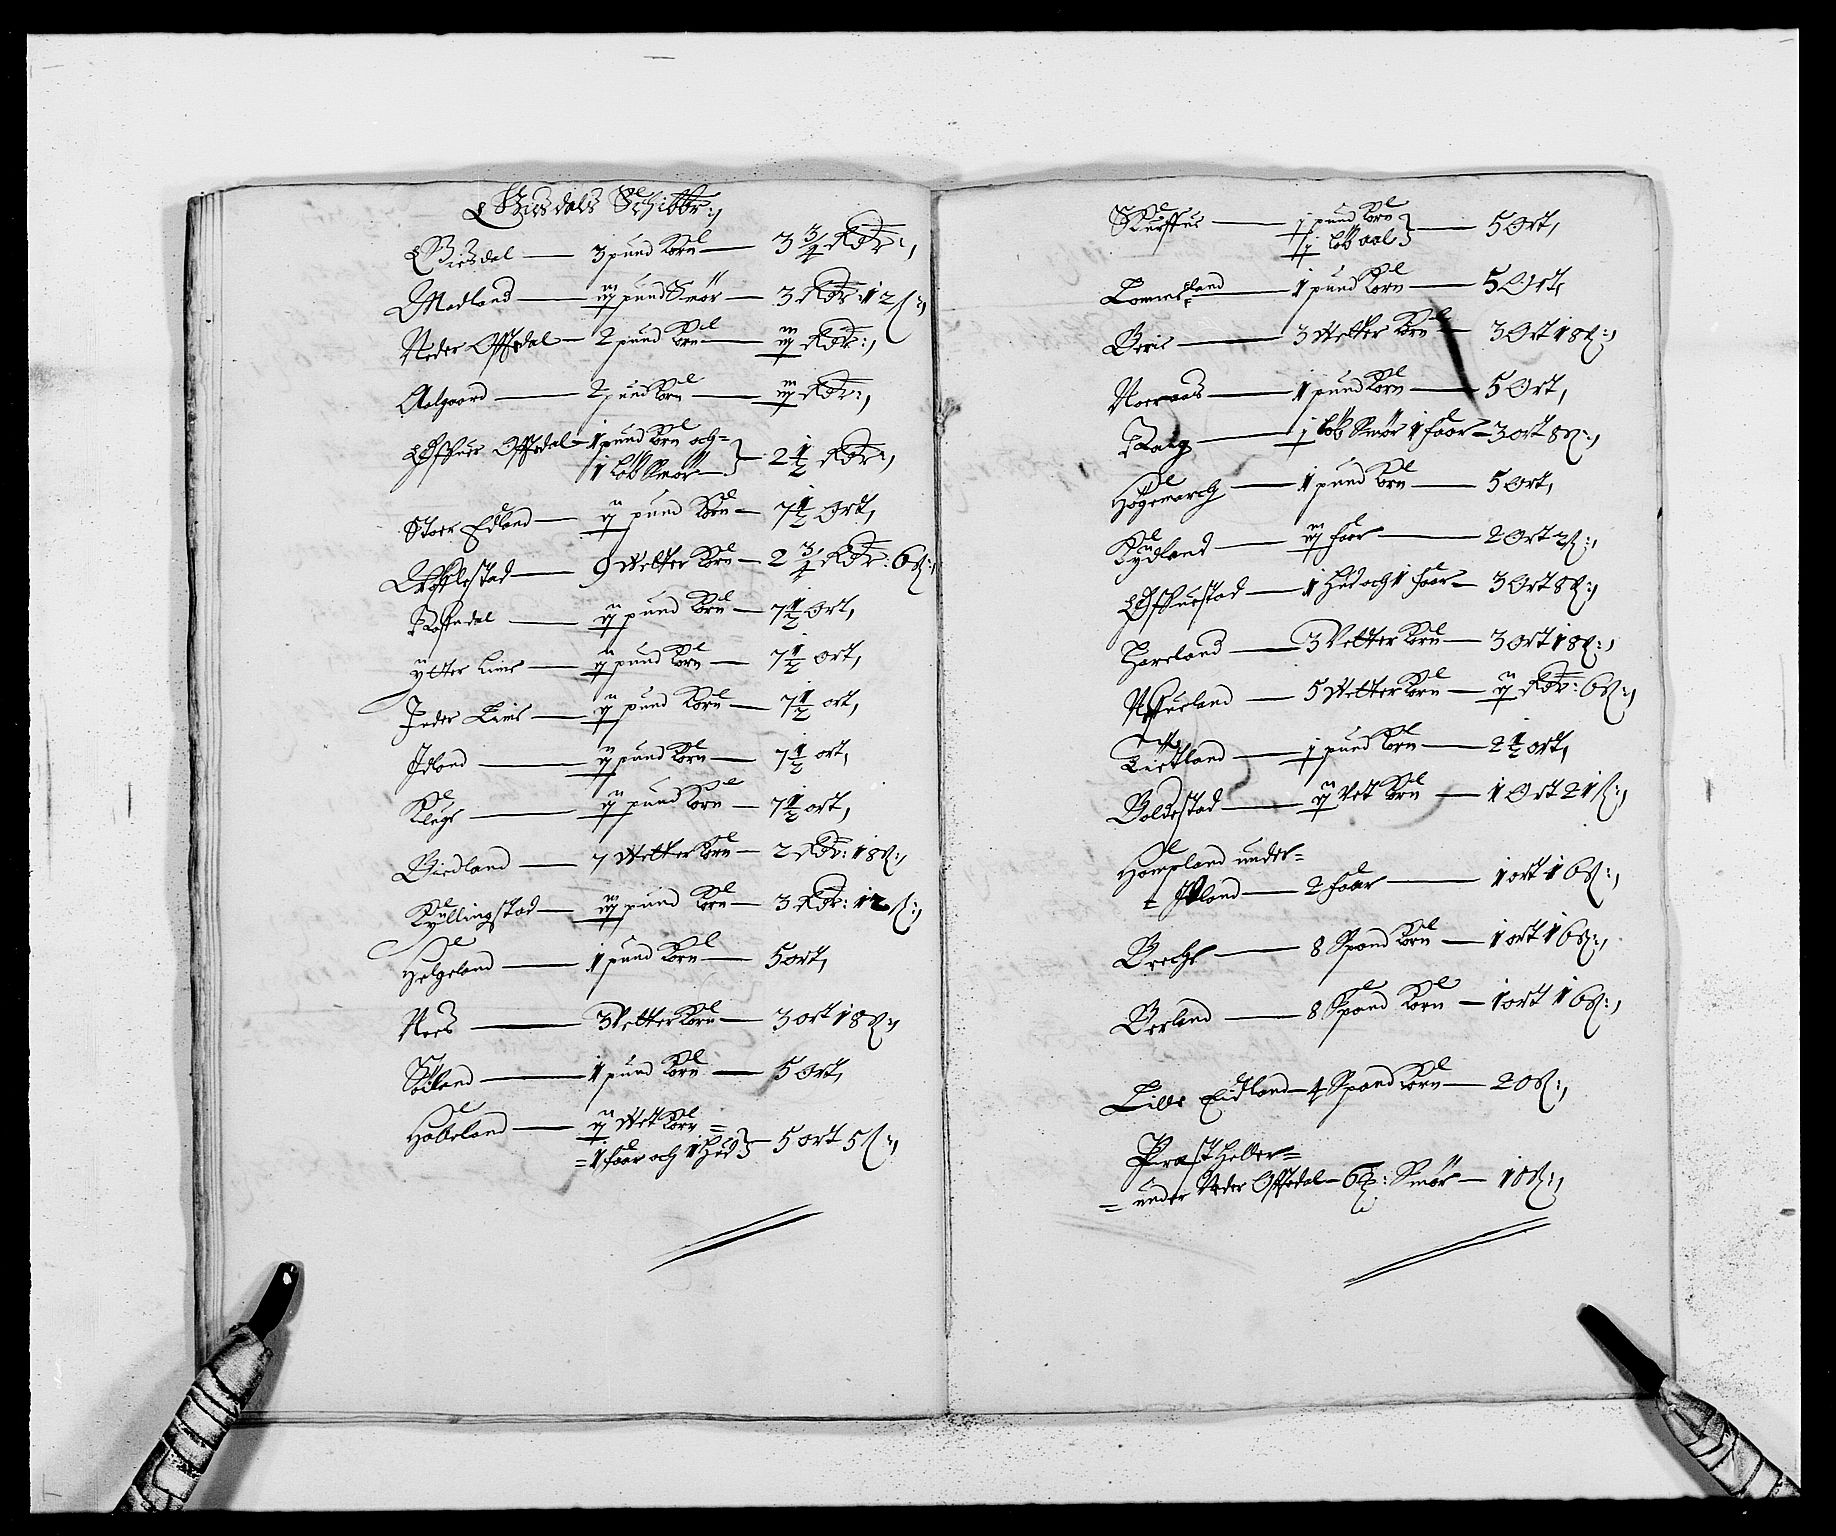 Giesdals Schibbr:,
Giesdal — 3 pund Korn — 3 3/4 Rdr:,
Madland — iij pund Smör — 3 Rdr: 12 ß:,
Neder Offsdal — 2 pund Korn — iij Rdr:,
Aalgaard — 2 pund Korn — iij Rdr:,
Offuer Offsdal — 1 pund Korn och =
1 løb Smör — } — 2 1/2 Rdr:,
Stoer Edland — ij pund Korn — 7 1/2 Ort,
— 9 Wetter Korn — 2 3/4 Rdr: 6 ß:,
— ij pund Korn — 7 1/2 Ort,
Ytter Lime — ij pund Korn — 7 1/2 ort,
Inder Lime — ij pund Korn — 7 1/2 ort,
Idland — ij pund Korn — 7 1/2 ort,
Kluge — ij pund Korn — 7 1/2 ort,
Giedland — 7 Wetter Korn — 2 Rdr: 18 ß:,
Kyllingstad — iij pund Korn — 3 Rdr: 12 ß:,
Helgeland — 1 pund Korn — 5 ort,
Nees — 3 Vetter Korn — 3 ort 18 ß:,
Søeland — 1 pund Korn — 5 ort,
Habeland — ij Wet Korn =
= 1 faar och 1 Hud } — 5 ort 5 ß:,
Skurffue — j pund Korn
j løb aal } — 5 Ort,
Lommeland — 1 pund Korn — 5 Ort,
— 3 Wetter Korn — 3 Ort 18 ß:,
Noeraas — 1 pund Korn — 5 Ort,
— j løb Smör 1 faar — 3 ort 8 ß:,
Høgemarch — 1 pund Korn — 5 ort,
Kydland — iij faar — 2 Ort 2 ß:,
Offuerstad — 1 Hud och 1 faar — 3 Ort 8 ß:,
Hareland — 3 Vetter Korn — 3 ort 18 ß:,
— 5 Wetter Korn — ij Rdr: 6 ß:,
— j pund Korn — 2 1/2 ort,
Boldestad — ij Vet Korn — 1 Ort 21 ß:,
Hompland under =
= — 2 faar — 1 ort 16 ß:,
Brecke — 8 Spand Korn — 1 ort 16 ß:,
Berland — 8 Spand Korn — 1 ort 16 ß:,
Lille Eidland — 4 Spand Korn — 20 ß:,
Præst Heller =
= under Neder Offsdal — 6 : Smör — 10 ß:,